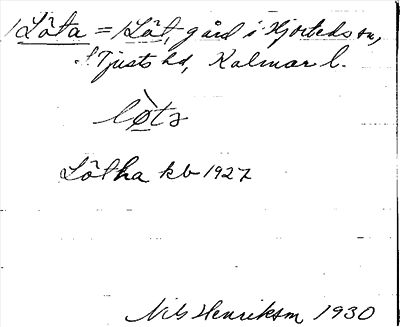 1 Lôta = 1 Lôt, gård i Hjorteds sn,
S Tjusts hd, Kalmar l.
lø̀tɜ
Lôtha kb 1927
Nils Henrikson 1930